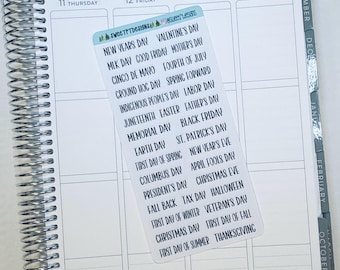 11 THURSDAY
12 FRIDAY
NEW YEARS DAY VALENTINE'S DAY
MLK DAY GOOD FRIDAY MOTHER'S DAY
CINCO DE MAYO FOURTH OF JULY
GROUND HOG DAY SPRING FORWARD
INDIGENOUS PEOPLE'S DAY LABOR DAY
JUNETEENTH EASTER FATHER'S DAY
MEMORIAL DAY BLACK FRIDAY
EARTH DAY ST. PATRICK'S DAY
FIRST DAY OF SPRING NEW YEAR'S EVE
COLUMBUS DAY APRIL FOOLS DAY
PRESIDENT'S DAY CHRISTMAS EVE
FALL BACK TAX DAY HALLOWEEN
FIRST DAY OF WINTER VETERAN'S DAY
CHRISTMAS DAY FIRST DAY OF FALL
FIRST DAY OF SUMMER THANKSGIVING
DECEMBER
JANUARY
FEBRUARY